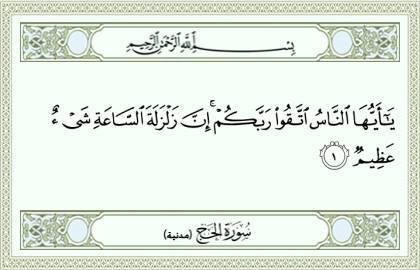 بِسْمِ ٱللَّهِ ٱلرَّحْمَٰنِ ٱلرَّحِيمِ
يَٰٓأَيُّهَا ٱلنَّاسُ ٱتَّقُوا۟ رَبَّكُمْ ۚ إِنَّ زَلْزَلَةَ ٱلسَّاعَةِ شَىْءٌ
عَظِيمٌ ١
سُورَةُ الْحَجِّ (مدنية)